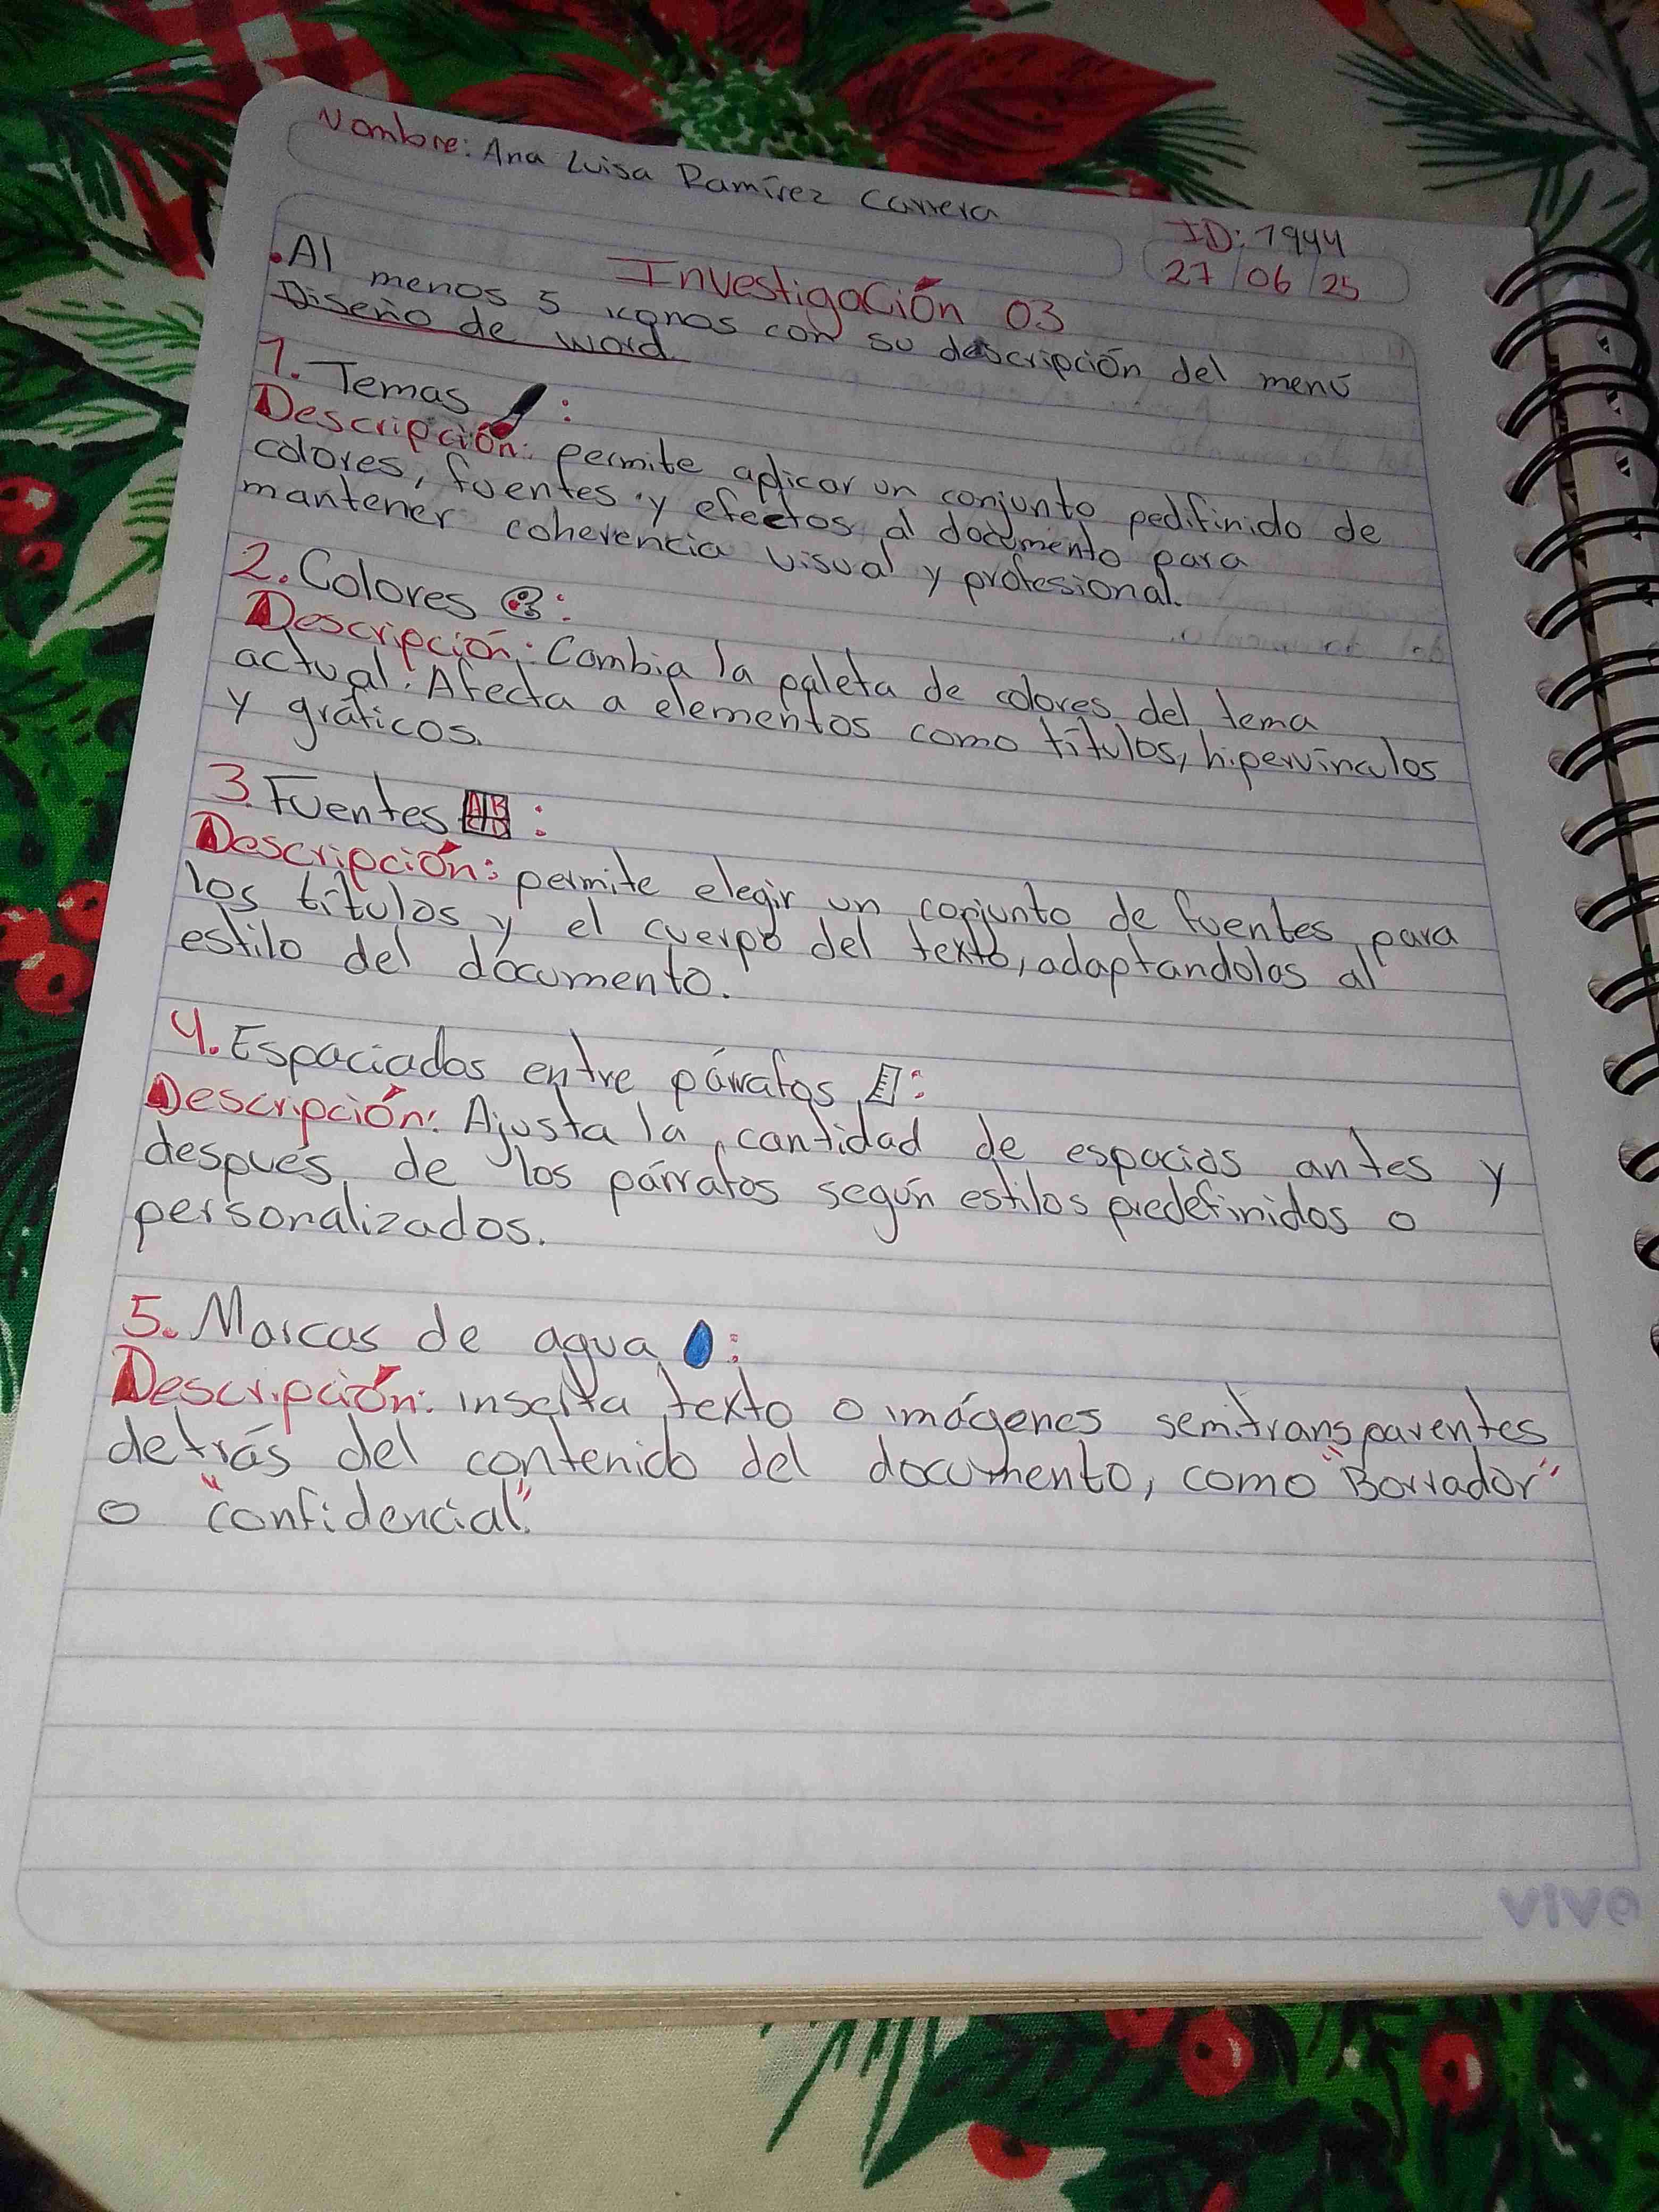 Nombre: Ana Luisa Ramírez Carrera
ID: 1944
27/06/25
Investigación 03
• Al menos 5 iconos con su descripción del menú
Diseño de word.
1. Temas :
Descripción: permite aplicar un conjunto pedifinido de
colores, fuentes y efectos al documento para
mantener coherencia visual y profesional.
2. Colores :
Descripción: Cambia la paleta de colores del tema
actual. Afecta a elementos como títulos, hipervínculos
y gráficos.
3. Fuentes AB CD :
Descripción: permite elegir un conjunto de fuentes para
los títulos y el cuerpo del texto, adaptandolas al
estilo del documento.
4. Espaciados entre párrafos :
Descripción: Ajusta la cantidad de espacios antes y
después de los párrafos según estilos predefinidos o
personalizados.
5. Marcas de agua :
Descripción: inserta texto o imágenes semitransparentes
detrás del contenido del documento, como "Borrador"
o "confidencial".
vivo